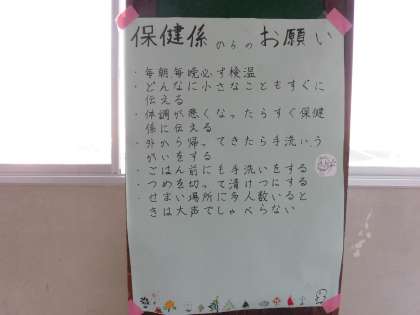 保健係からのお願い
・毎朝、毎晩必ず検温
・どんなに小さなこともすぐに
伝える
・体調が悪くなったらすぐ保健
係に伝える
・外から帰ってきたら手洗いう
がいをする
・ごはん前にも手洗いをする
・つめを切って清けつにする
・せまい場所に多人数いると
きは大声でしゃべらない